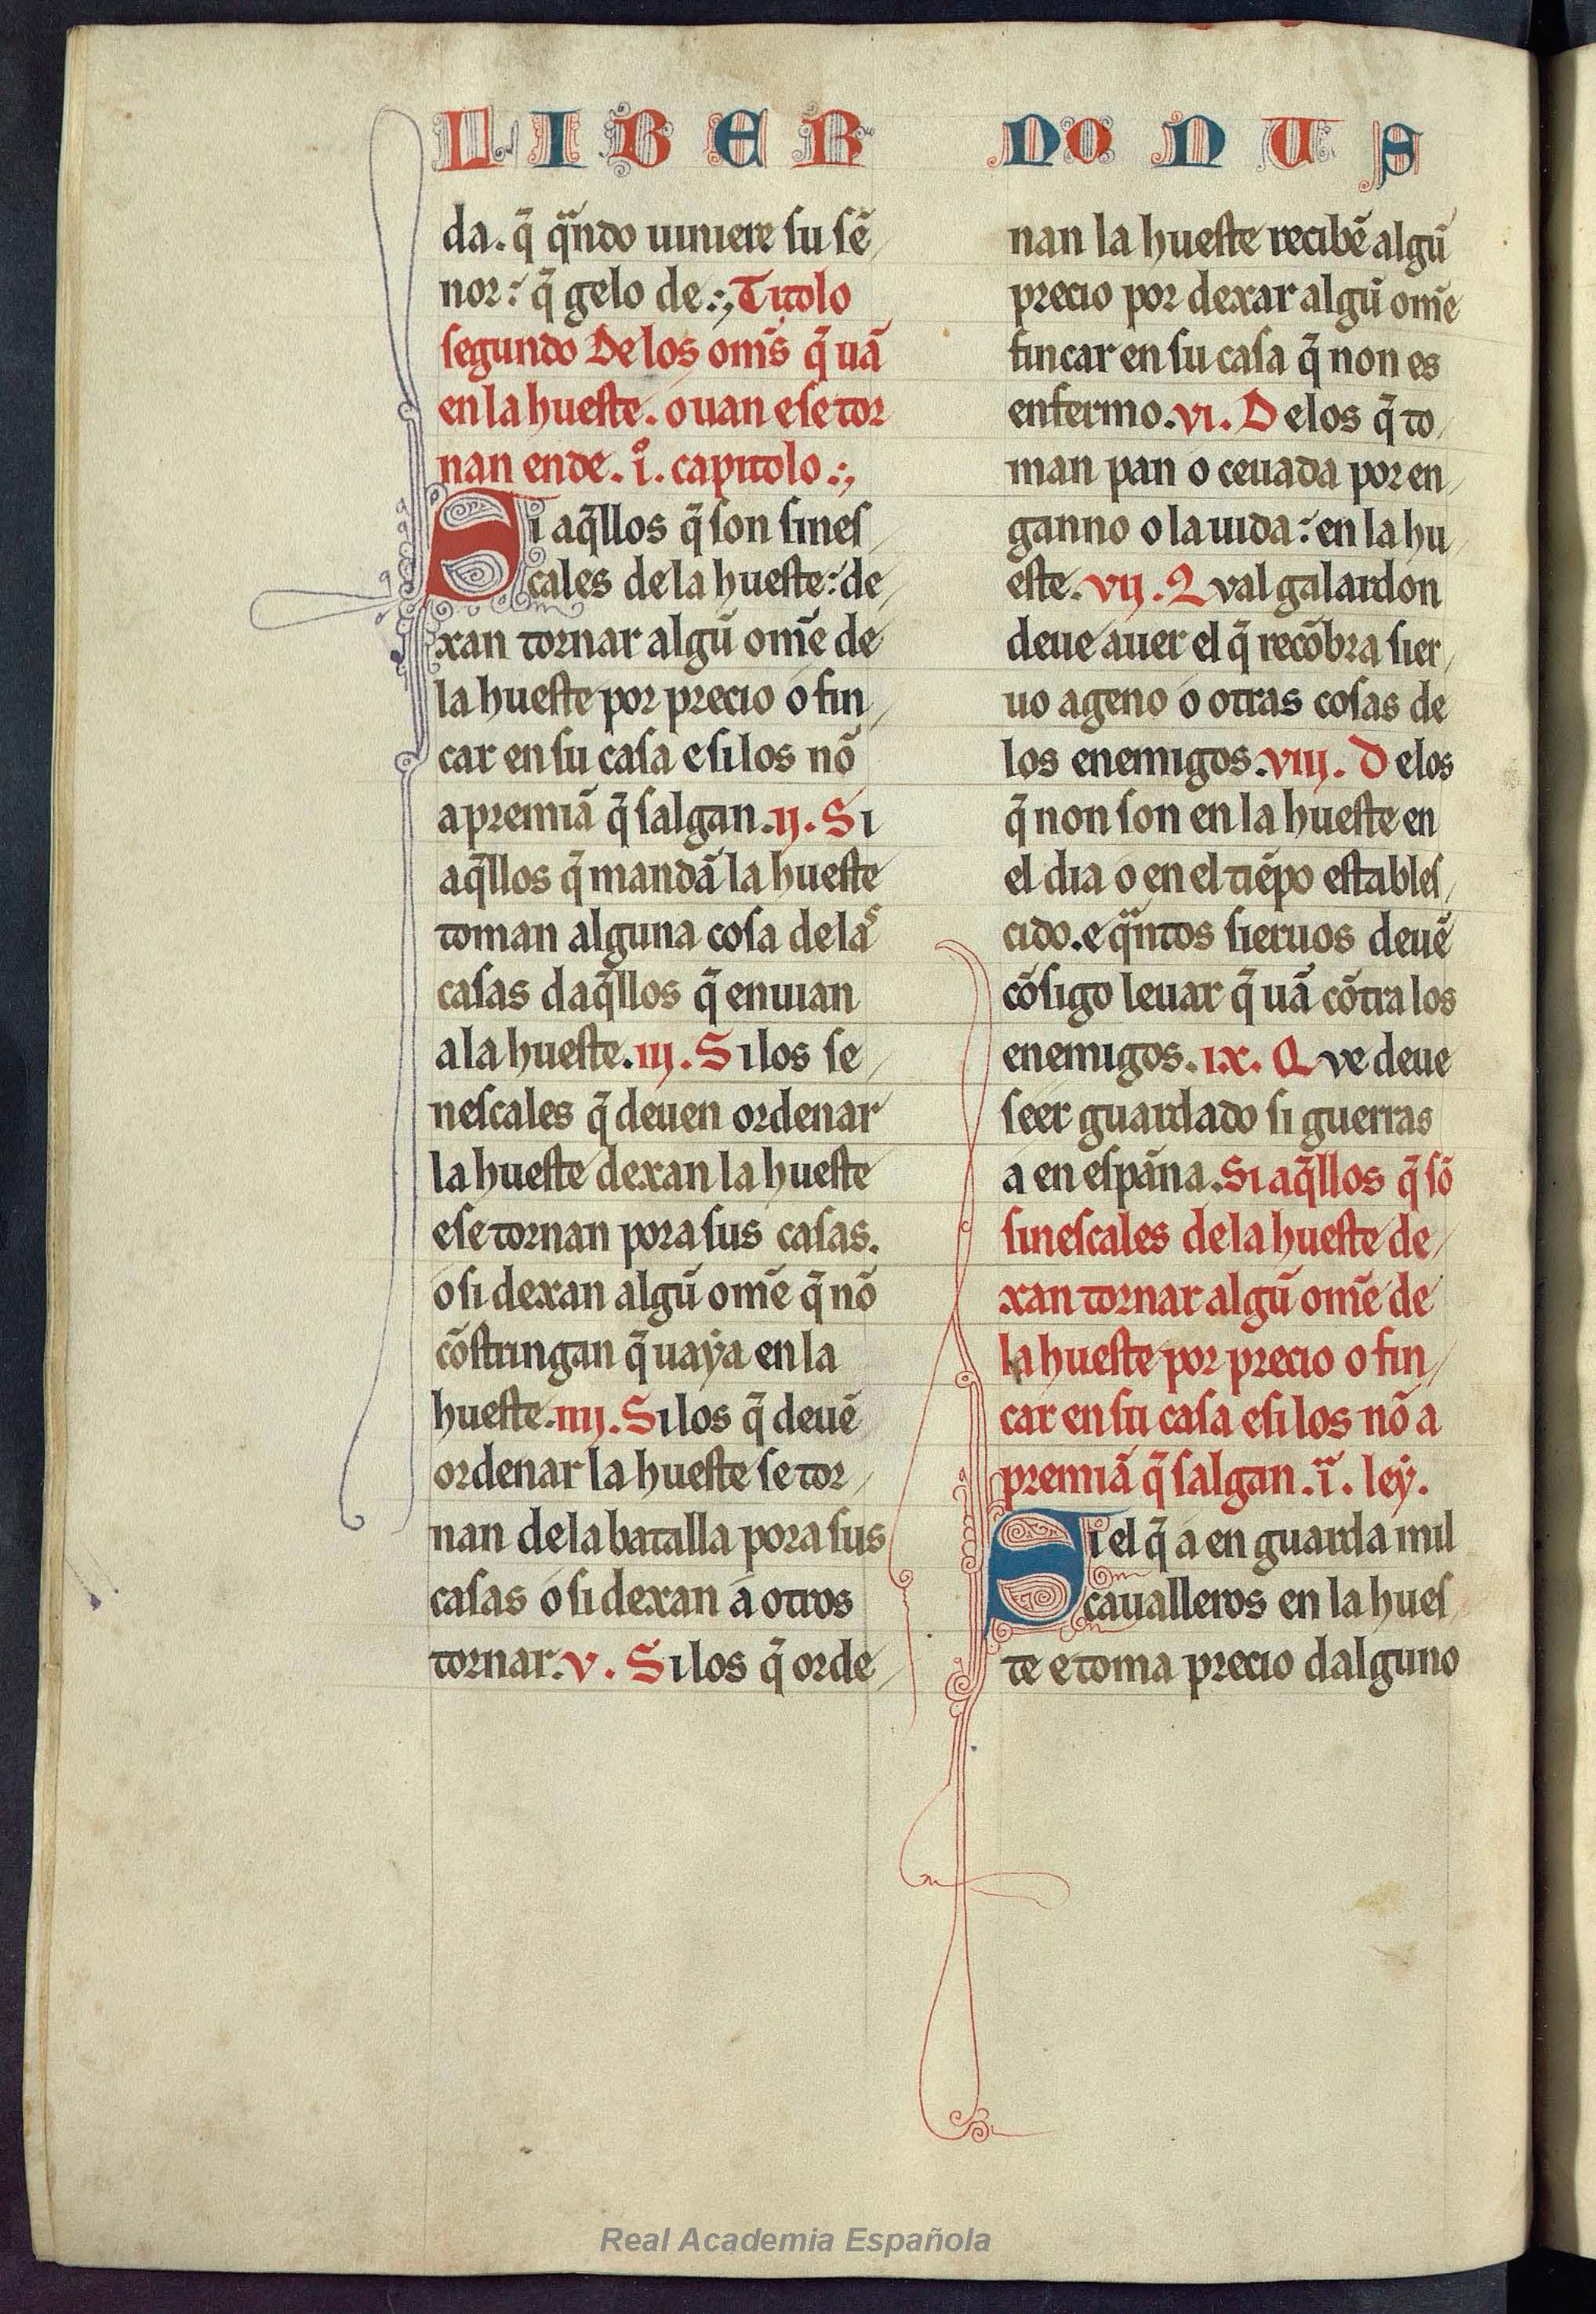 LIBER NONUS
da. q̃ qͣndo uiniere su sẽ
nor: q̃ gelo de.; Titolo
segundo De los om̃s q̃ uã
en la hueste. o uan e se tor
nan ende. i.º capitolo.;
Si aq̃llos q̃ son sines
cales de la hueste: de
xan tornar algũ om̃e de
la hueste por precio o fin
car en su casa e si los nõ
apremiã q̃ salgan. ij. Si
aq̃llos q̃ mandã la hueste
toman alguna cosa de las
casas daq̃llos q̃ enuian
a la hueste. iij. Si los se
nescales q̃ deuen ordenar
la hueste dexan la hueste
e se tornan pora sus casas.
o si dexan algũ om̃e q̃ nõ
cõstringan q̃ uaẏa en la
hueste. iiij. Si los q̃ deuẽ
ordenar la hueste se tor
nan de la batalla pora sus
casas o si dexan a otros
tornar. v. Si los q̃ orde
nan la hueste recibẽ algũ
precio por dexar algũ om̃e
fincar en su casa q̃ non es
enfermo. vi. De los q̃ to
man pan o ceuada por en
ganno o la uida: en la hu
este. vij. Qval galardon
deue auer el q̃ recõbra sier
uo ageno o otras cosas de
los enemigos. viij. De los
q̃ non son en la hueste en
el dia o en el tiẽpo estables
cido. e qͣntos sieruos deuẽ
cõsigo leuar q̃ uã cõtra los
enemigos. ix. Qve deue
seer guardado si guerras
a en espãna. Si aq̃llos q̃ sõ
sinescales de la hueste de
xan tornar algũ om̃e de
la hueste por precio o fin
car en su casa e si los nõ a
premiã q̃ salgan. iͣ. leẏ.
Si el q̃ a en guarda mil
caualleros en la hues
te e toma precio dalguno
Real Academia Española